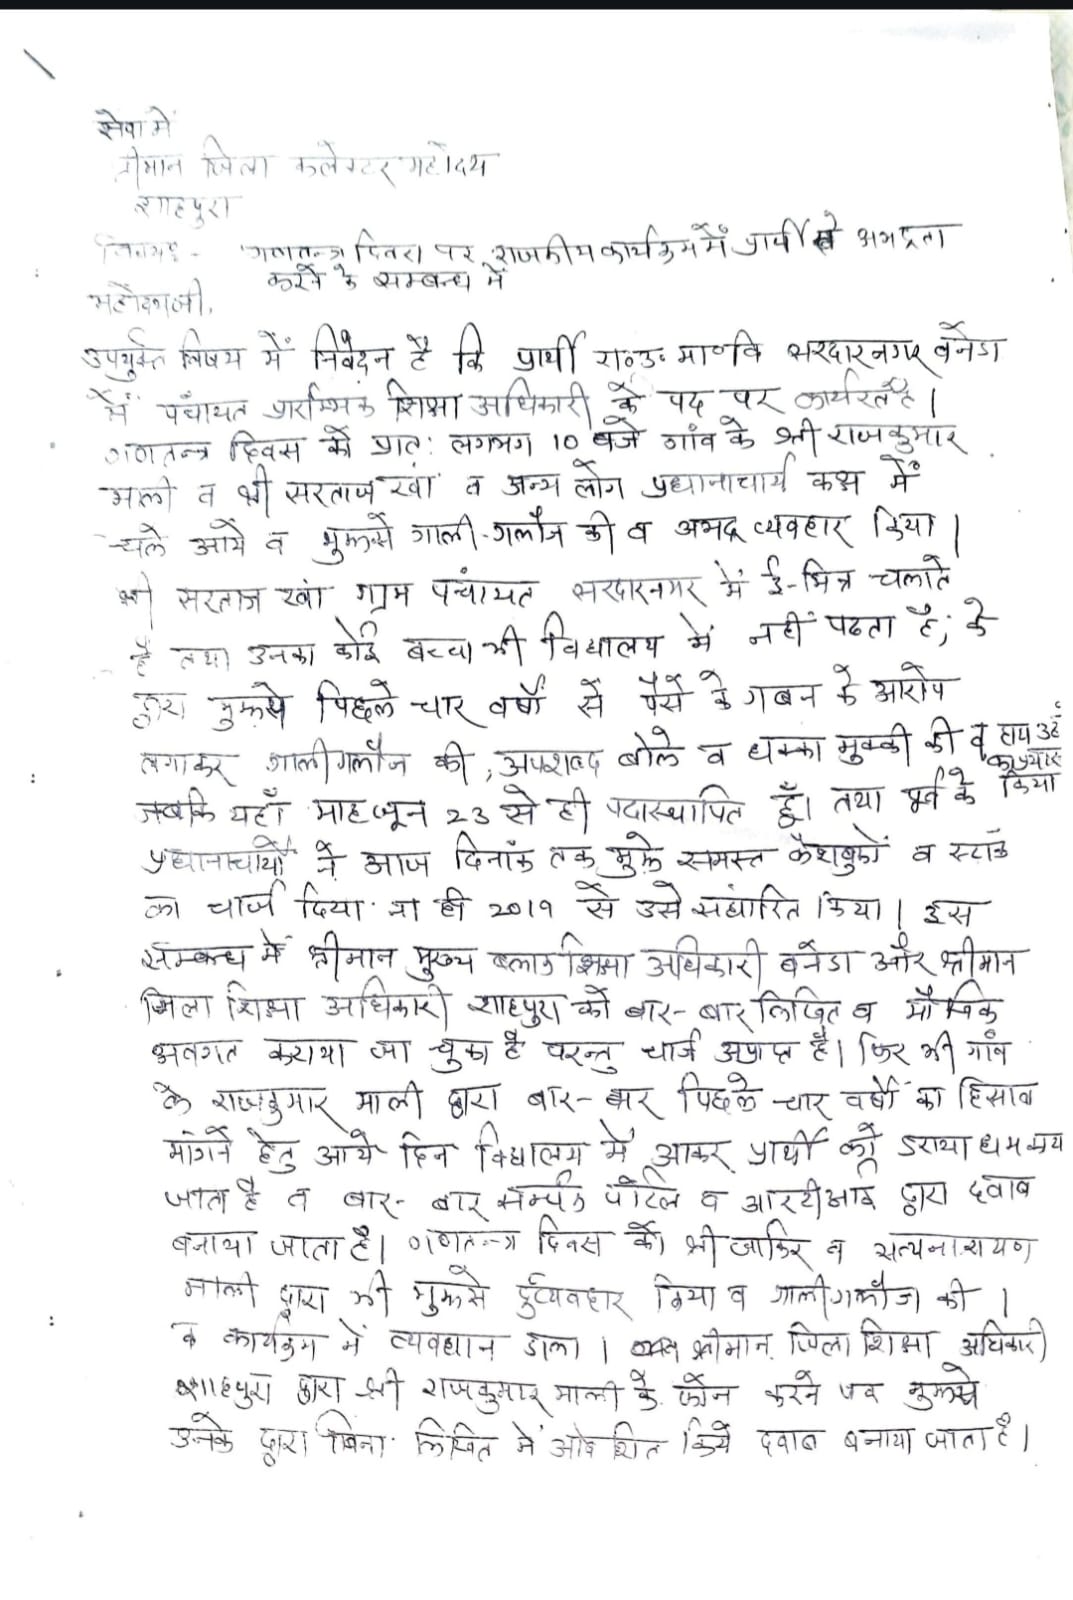 सेवा में
श्रीमान जिला कलेक्टर महोदय
शाहपुरा
विषय:- गणतन्त्र दिवस पर राजकीय कार्यक्रम में प्रार्थी से अभद्रता
करने के सम्बन्ध में
महोदयजी,
उपर्युक्त विषय में निवेदन है कि प्रार्थी रा०उ० मा०वि सरदारनगर बनेडा
में पंचायत प्रारम्भिक शिक्षा अधिकारी के पद पर कार्यरत है।
गणतन्त्र दिवस को प्रात: लगभग 10 बजे गांव के श्री राजकुमार
माली व श्री सरताज खां व अन्य लोग प्रधानाचार्य कक्ष में
चले आये व मुझसे गाली-गलौज की व अभद्र व्यवहार किया।
श्री सरताज खां ग्राम पंचायत सरदारनगर में ई-मित्र चलाते
है तथा उनका कोई बच्चा भी विद्यालय में नहीं पढता है, के
द्वारा मुझसे पिछले चार वर्षों से पैसे के गबन के आरोप
लगाकर गालीगलौज की, अपशब्द बोले व धक्का मुक्की की व हाथ
का प्रयास किया
जबकि यहाँ माह जून 23 से ही पदास्थापित हूँ। तथा पूर्व के
प्रधानाचार्यों ने आज दिनांक तक मुझे समस्त कैशबुकों व स्टॉक
का चार्ज दिया ना ही 2019 से उसे संधारित किया। इस
सम्बन्ध में श्रीमान मुख्य ब्लाक शिक्षा अधिकारी बनेडा और श्रीमान
जिला शिक्षा अधिकारी शाहपुरा को बार-बार लिखित व मौखिक
अवगत कराया जा चुका है परन्तु चार्ज अप्राप्त है। फिर भी गांव
के राजकुमार माली द्वारा बार-बार पिछले चार वर्षों का हिसाब
मांगने हेतु आये दिन विद्यालय में आकर प्रार्थी को डराया धमकाया
जाता है व बार-बार सम्पर्क पोर्टल व आरटीआई द्वारा दवाब
बनाया जाता है। गणतन्त्र दिवस को श्री जाकिर व सत्यनारायण
माली द्वारा भी मुझसे दुर्व्यवहार किया व गालीगलौज की ।
व कार्यक्रम में व्यवधान डाला । श्रीमान जिला शिक्षा अधिकारी
शाहपुरा द्वारा श्री राजकुमार माली के फोन करने पर मुझसे
उनके द्वारा बिना लिखित में आदेशित किये दवाब बनाया जाता है।